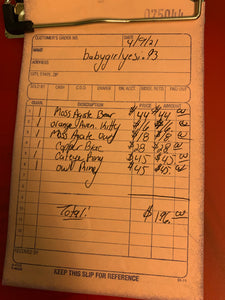 025044
CUSTOMER'S ORDER NO. DATE 4/9/21
NAME babygirlyesi.93
ADDRESS
CITY, STATE, ZIP
SOLD BY CASH C.O.D. CHARGE ON. ACCT. MDSE. RETD. PAID OUT
QUAN. DESCRIPTION PRICE AMOUNT
1 Moss Agate Bear $44 $44
1 Orange Aven. Kitty $16 $16
1 Moss Agate Owl $18 $18
1 Copper Brac $28 $28
1 Cateye Ring $45 $45
1 Owl Ring $45 $45
Total: $196.
RECEIVED BY
KEEP THIS SLIP FOR REFERENCE